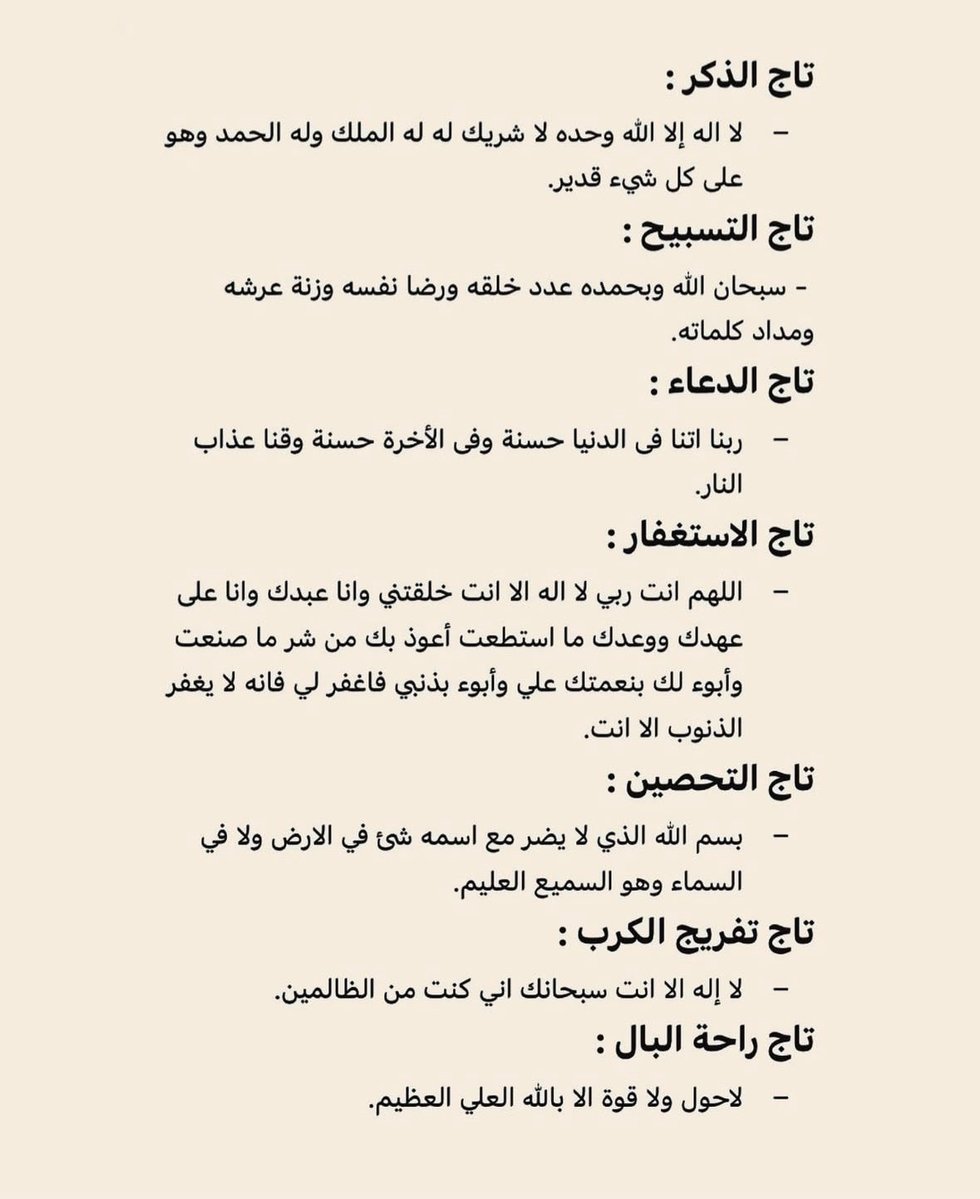 تاج الذكر :
– لا اله إلا الله وحده لا شريك له له الملك وله الحمد وهو
على كل شيء قدير.
تاج التسبيح :
- سبحان الله وبحمده عدد خلقه ورضا نفسه وزنة عرشه
ومداد كلماته.
تاج الدعاء :
– ربنا اتنا فى الدنيا حسنة وفى الأخرة حسنة وقنا عذاب
النار.
تاج الاستغفار :
– اللهم انت ربي لا اله الا انت خلقتني وانا عبدك وانا على
عهدك ووعدك ما استطعت أعوذ بك من شر ما صنعت
وأبوء لك بنعمتك علي وأبوء بذنبي فاغفر لي فانه لا يغفر
الذنوب الا انت.
تاج التحصين :
– بسم الله الذي لا يضر مع اسمه شئ في الارض ولا في
السماء وهو السميع العليم.
تاج تفريج الكرب :
– لا إله الا انت سبحانك اني كنت من الظالمين.
تاج راحة البال :
– لاحول ولا قوة الا بالله العلي العظيم.